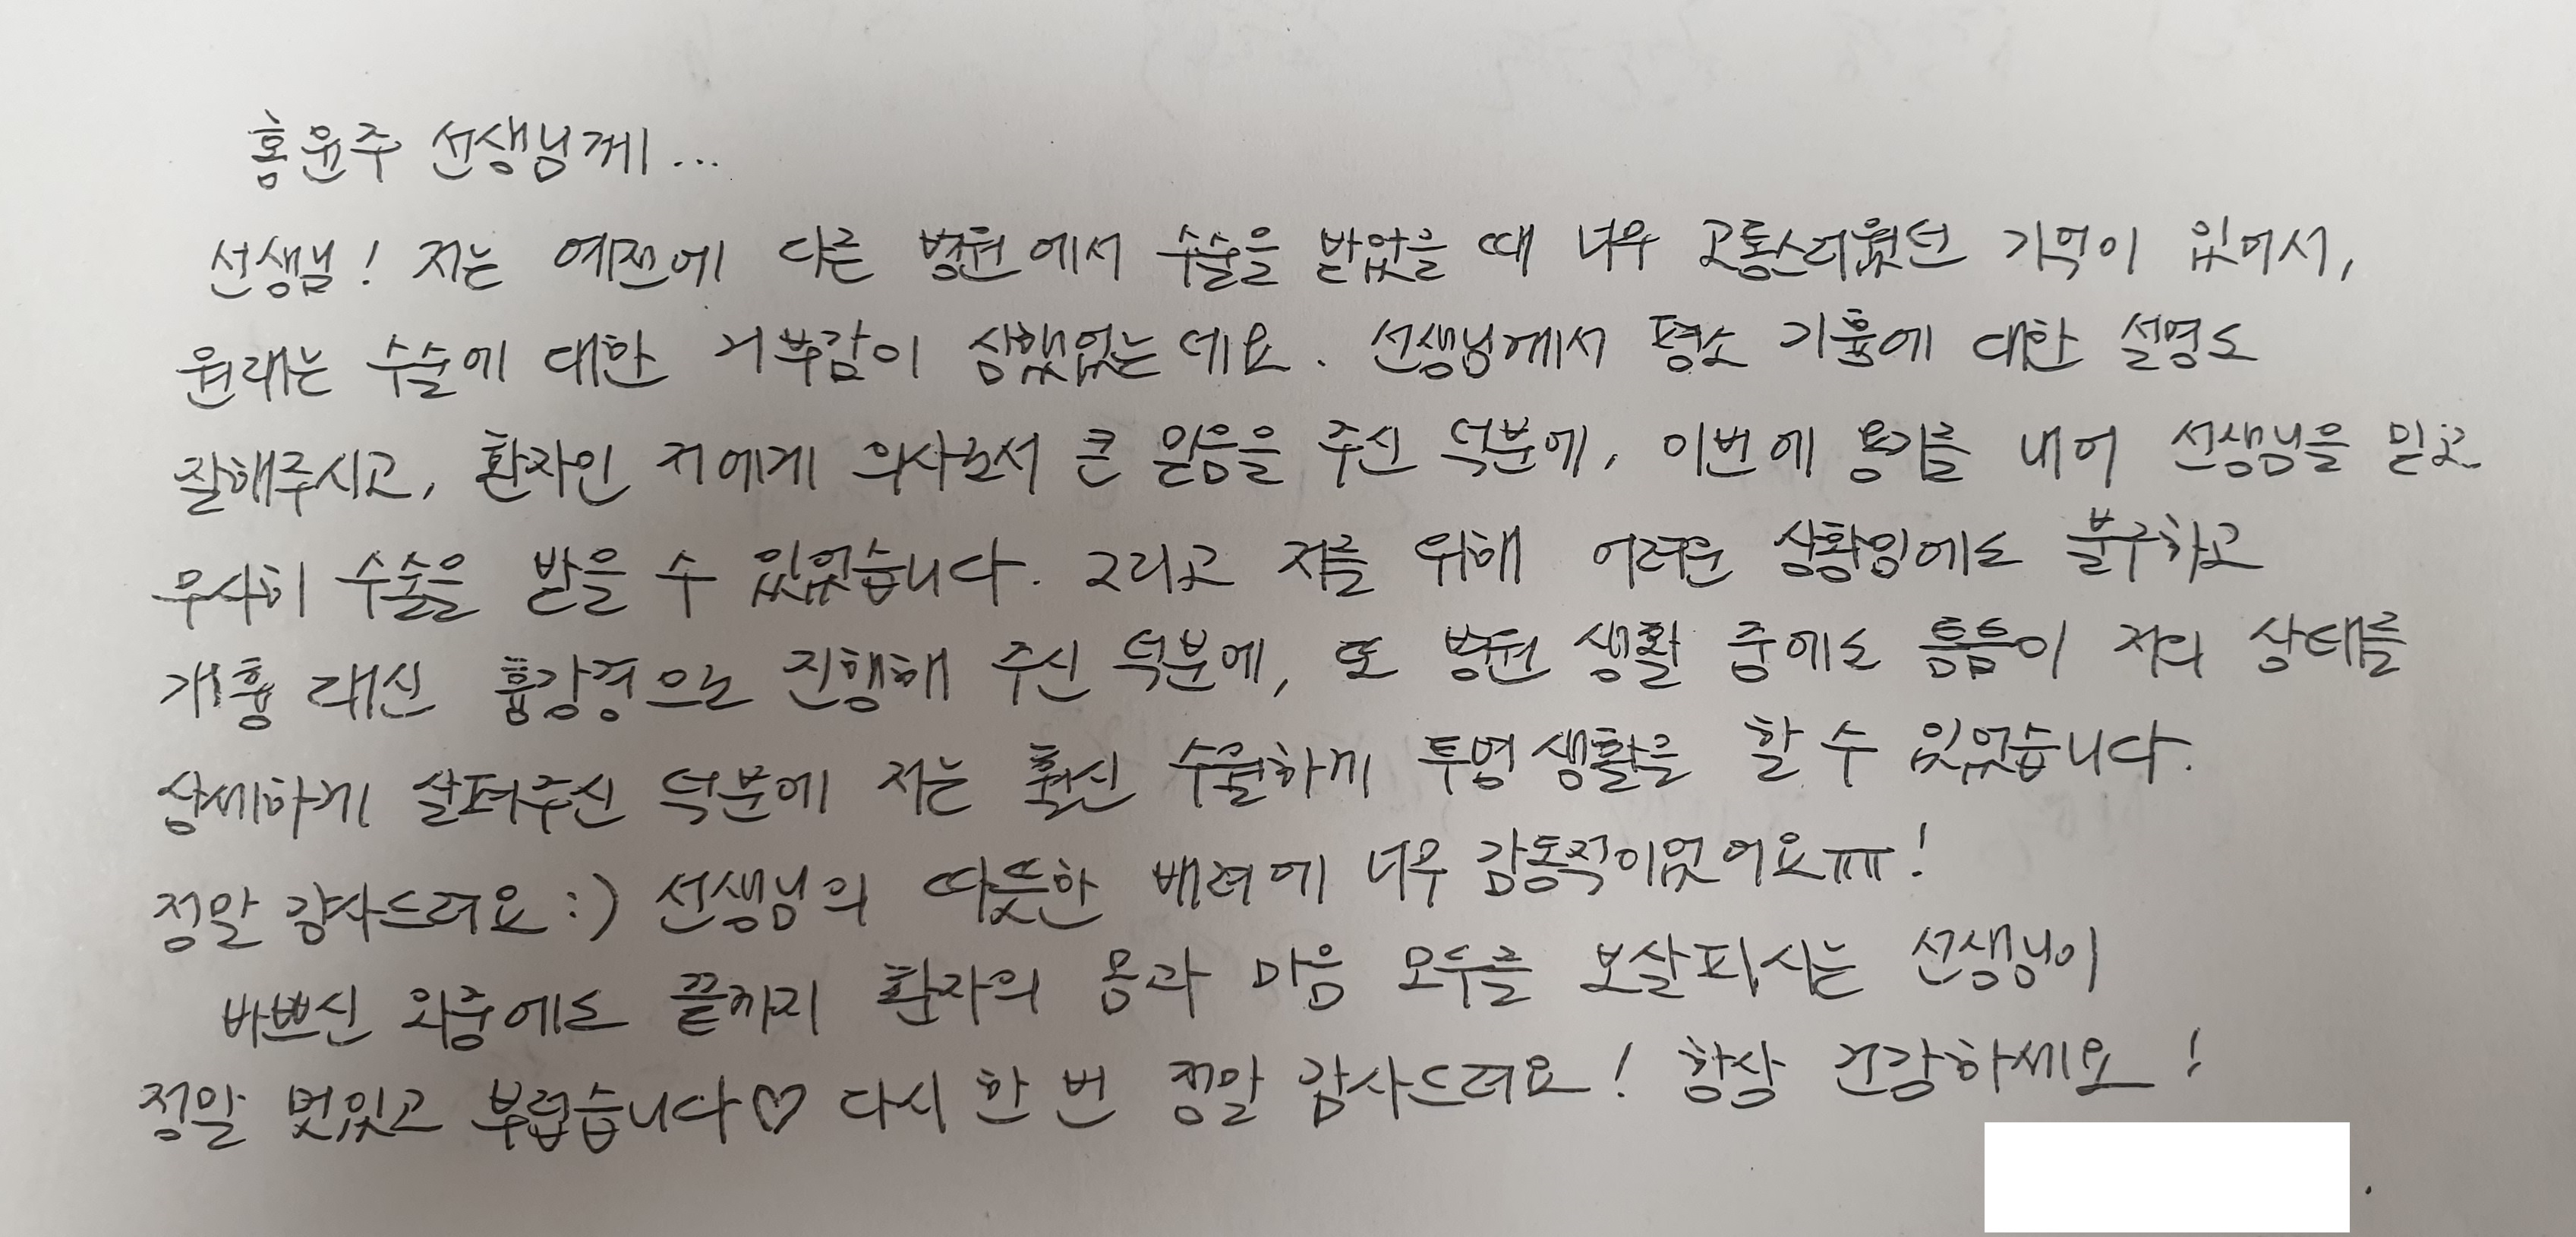 홍윤주 선생님께...
선생님! 저는 예전에 다른 병원에서 수술을 받았을 때 너무 고통스러웠던 기억이 있어서,
원래는 수술에 대한 거부감이 심했었는데요. 선생님께서 평소 기흉에 대한 설명도
잘해주시고, 환자인 저에게 의사로서 큰 믿음을 주신 덕분에, 이번에 용기를 내어 선생님을 믿고
무사히 수술을 받을 수 있었습니다. 그리고 저를 위해 어려운 상황임에도 불구하고
개흉 대신 흉강경으로 진행해 주신 덕분에, 또 병원 생활 중에도 틈틈이 저의 상태를
상세하게 살펴주신 덕분에 저는 훨씬 수월하게 투병생활을 할 수 있었습니다.
정말 감사드려요 :) 선생님의 따뜻한 배려에 너무 감동적이었어요ㅠㅠ!
바쁘신 와중에도 끝까지 환자의 몸과 마음 모두를 보살피시는 선생님이
정말 멋있고 부럽습니다♡ 다시 한 번 정말 감사드려요! 항상 건강하세요!